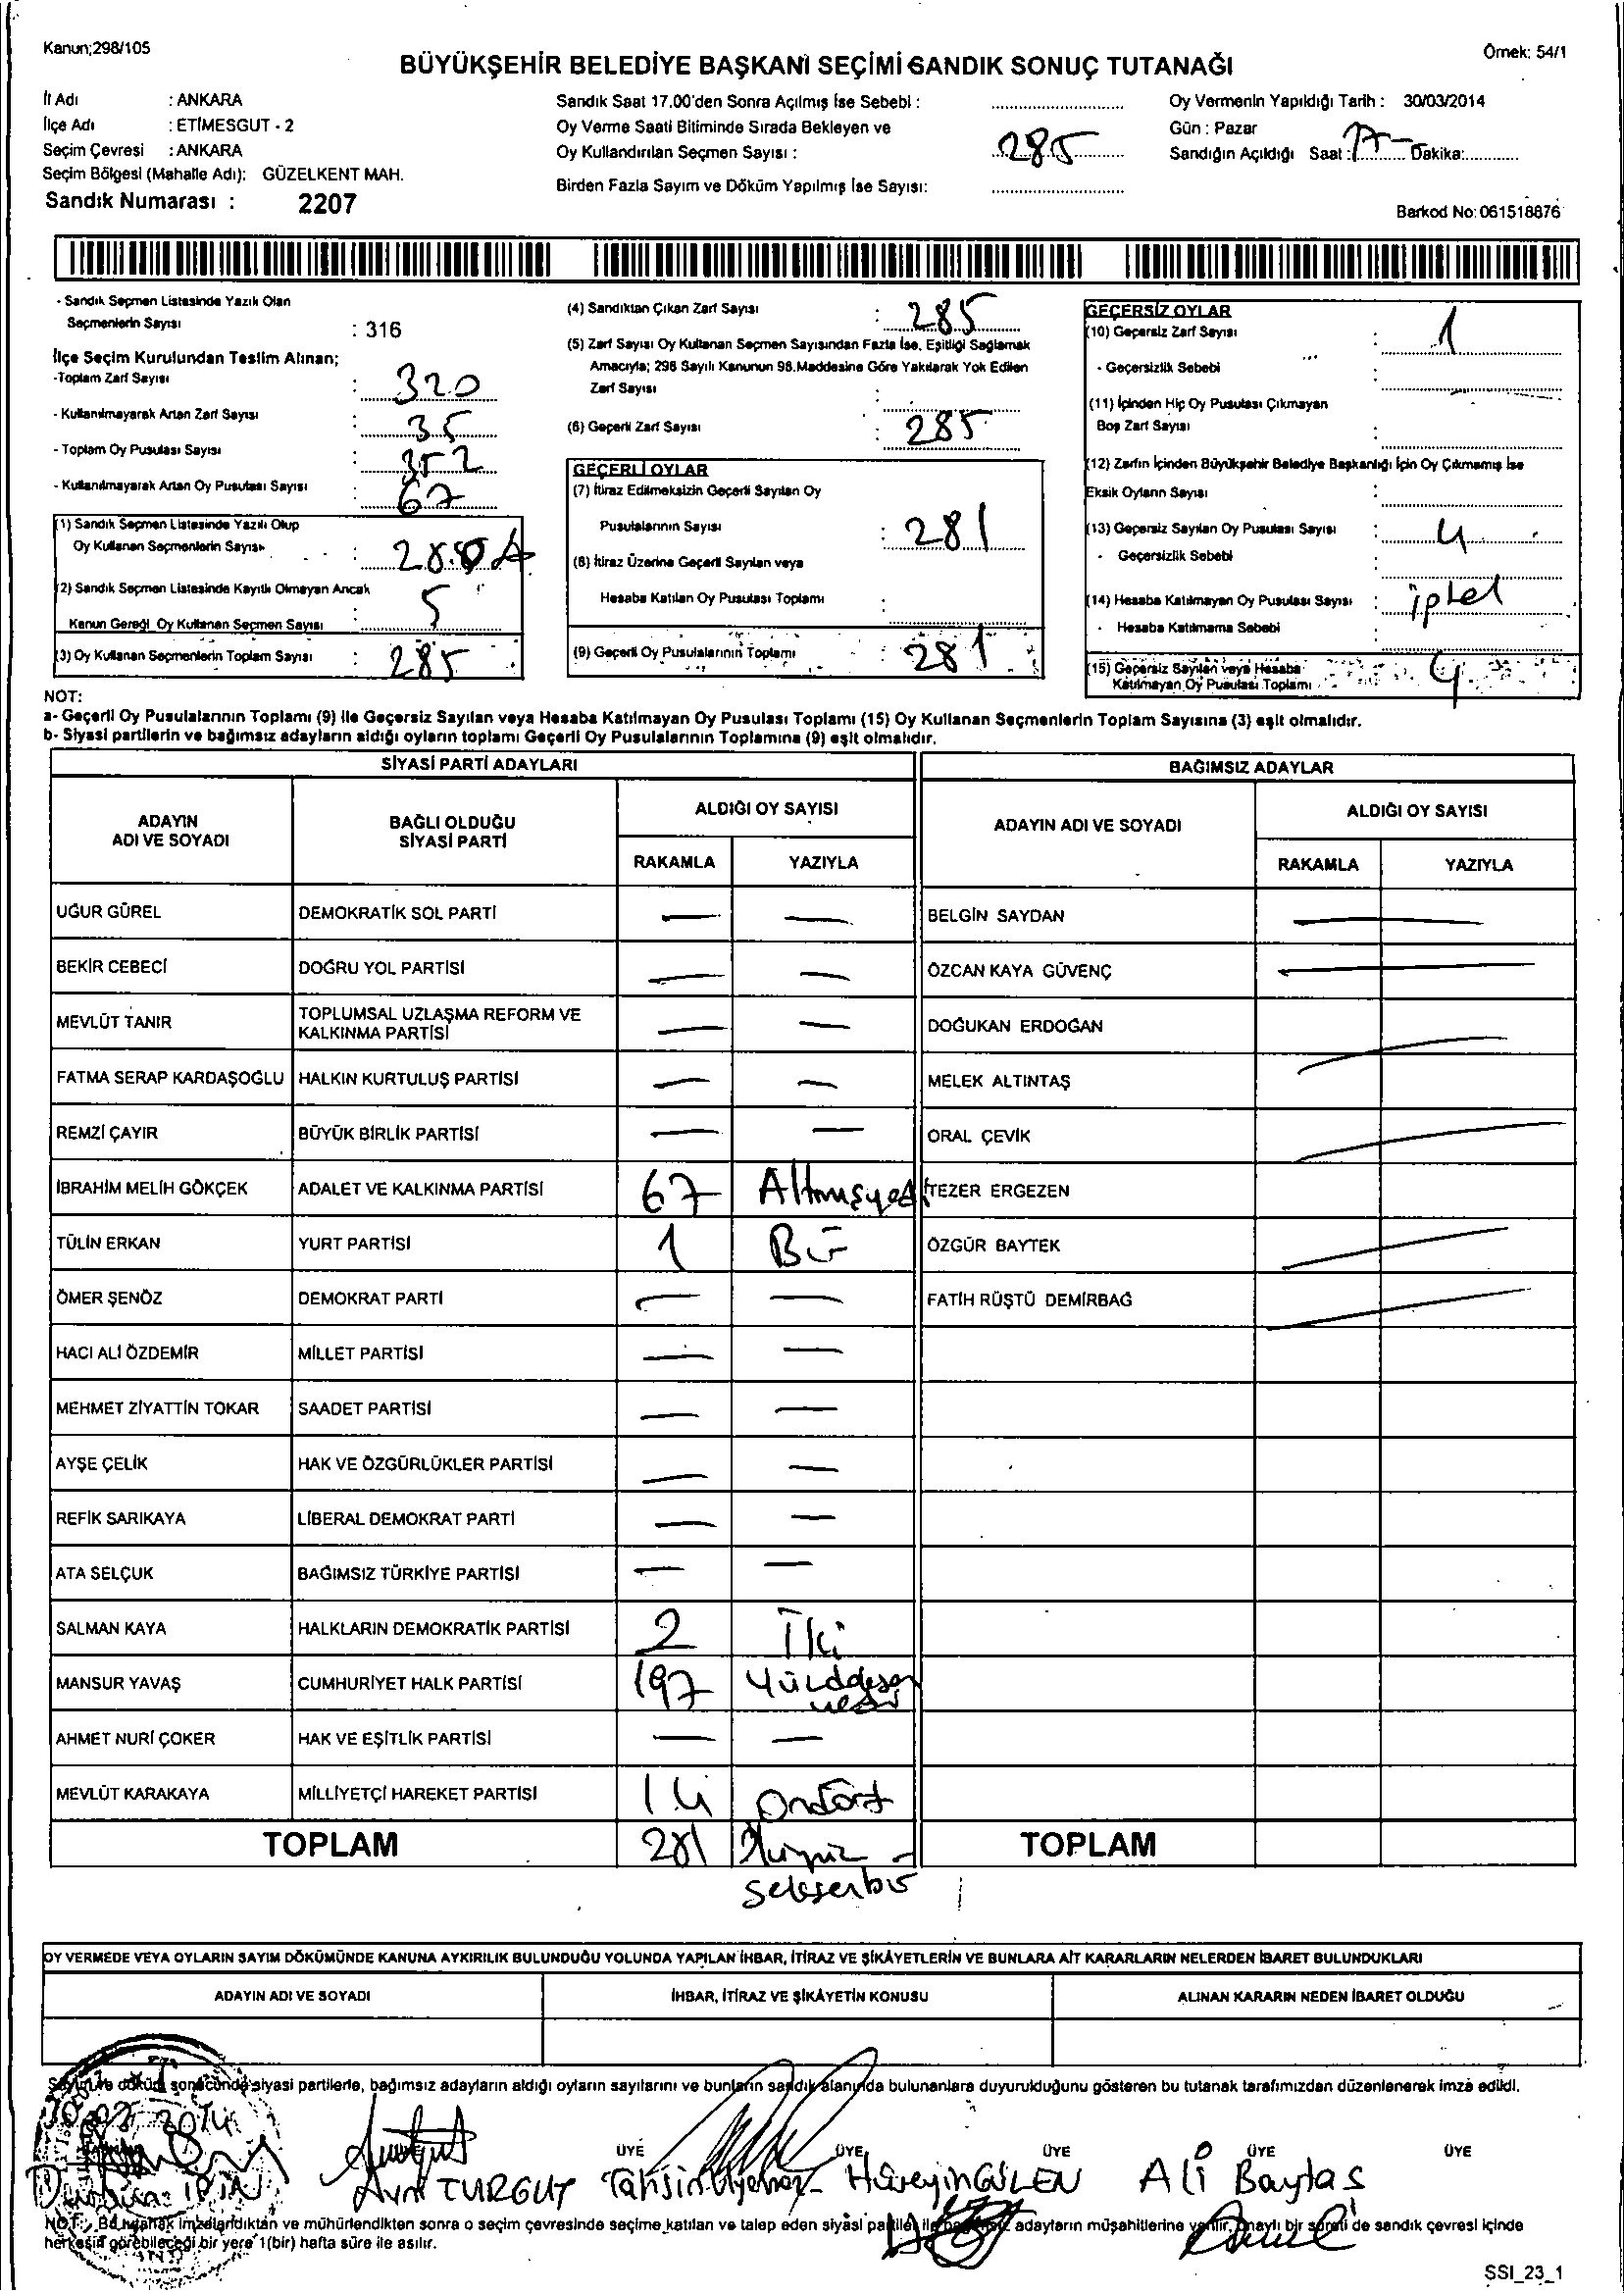 Kanun;298/105
Örnek: 54/1
BÜYÜKŞEHİR BELEDİYE BAŞKANI SEÇİMİ SANDIK SONUÇ TUTANAĞI
İl Adı : ANKARA
İlçe Adı : ETİMESGUT - 2
Seçim Çevresi : ANKARA
Seçim Bölgesi (Mahalle Adı): GÜZELKENT MAH.
Sandık Numarası : 2207
Sandık Saat 17.00'den Sonra Açılmış İse Sebebi :
Oy Verme Saati Bitiminde Sırada Bekleyen ve
Oy Kullandırılan Seçmen Sayısı : 285
Birden Fazla Sayım ve Döküm Yapılmış İse Sayısı:
Oy Vermenin Yapıldığı Tarih : 30/03/2014
Gün : Pazar
Sandığın Açıldığı Saat : 17 Dakika:
Barkod No: 061518876
- Sandık Seçmen Listesinde Yazılı Olan
Seçmenlerin Sayısı : 316
İlçe Seçim Kurulundan Teslim Alınan;
-Toplam Zarf Sayısı : 320
- Kullanılmayarak Artan Zarf Sayısı : 35
- Toplam Oy Pusulası Sayısı : 352
- Kullanılmayarak Artan Oy Pusulası Sayısı : 67
(1) Sandık Seçmen Listesinde Yazılı Olup
Oy Kullanan Seçmenlerin Sayısı : 280
(2) Sandık Seçmen Listesinde Kayıtlı Olmayan Ancak
Kanun Gereği Oy Kullanan Seçmen Sayısı : 5
(3) Oy Kullanan Seçmenlerin Toplam Sayısı : 285
(4) Sandıktan Çıkan Zarf Sayısı : 285
(5) Zarf Sayısı Oy Kullanan Seçmen Sayısından Fazla İse, Eşitliği Sağlamak
Amacıyla; 298 Sayılı Kanunun 98.Maddesine Göre Yakılarak Yok Edilen
Zarf Sayısı :
(6) Geçerli Zarf Sayısı : 285
GEÇERLİ OYLAR
(7) İtiraz Edilmeksizin Geçerli Sayılan Oy
Pusulalarının Sayısı : 281
(8) İtiraz Üzerine Geçerli Sayılan veya
Hesaba Katılan Oy Pusulası Toplamı :
(9) Geçerli Oy Pusulalarının Toplamı : 281
GEÇERSİZ OYLAR
(10) Geçersiz Zarf Sayısı : 1
- Geçersizlik Sebebi :
(11) İçinden Hiç Oy Pusulası Çıkmayan
Boş Zarf Sayısı :
(12) Zarfın İçinden Büyükşehir Belediye Başkanlığı İçin Oy Çıkmamış İse
Eksik Oyların Sayısı :
(13) Geçersiz Sayılan Oy Pusulası Sayısı : 4
- Geçersizlik Sebebi :
(14) Hesaba Katılmayan Oy Pusulası Sayısı : iptel
- Hesaba Katılmama Sebebi :
(15) Geçersiz Sayılan veya Hesaba
Katılmayan Oy Pusulası Toplamı : 4
NOT:
a- Geçerli Oy Pusulalarının Toplamı (9) ile Geçersiz Sayılan veya Hesaba Katılmayan Oy Pusulası Toplamı (15) Oy Kullanan Seçmenlerin Toplam Sayısına (3) eşit olmalıdır.
b- Siyasi partilerin ve bağımsız adayların aldığı oyların toplamı Geçerli Oy Pusulalarının Toplamına (9) eşit olmalıdır.
SİYASİ PARTİ ADAYLARI
ADAYIN ADI VE SOYADI
BAĞLI OLDUĞU SİYASİ PARTİ
ALDIĞI OY SAYISI
RAKAMLA YAZIYLA
BAĞIMSIZ ADAYLAR
ADAYIN ADI VE SOYADI
ALDIĞI OY SAYISI
RAKAMLA YAZIYLA
UĞUR GÜREL DEMOKRATİK SOL PARTİ — — BELGİN SAYDAN —
BEKİR CEBECİ DOĞRU YOL PARTİSİ — — ÖZCAN KAYA GÜVENÇ —
MEVLÜT TANIR TOPLUMSAL UZLAŞMA REFORM VE KALKINMA PARTİSİ — — DOĞUKAN ERDOĞAN
FATMA SERAP KARDAŞOĞLU HALKIN KURTULUŞ PARTİSİ — — MELEK ALTINTAŞ —
REMZİ ÇAYIR BÜYÜK BİRLİK PARTİSİ — — ORAL ÇEVİK —
İBRAHİM MELİH GÖKÇEK ADALET VE KALKINMA PARTİSİ 67 Altmışyedi TEZER ERGEZEN
TÜLİN ERKAN YURT PARTİSİ 1 Bir ÖZGÜR BAYTEK —
ÖMER ŞENÖZ DEMOKRAT PARTİ — — FATİH RÜŞTÜ DEMİRBAĞ —
HACI ALİ ÖZDEMİR MİLLET PARTİSİ — —
MEHMET ZİYATTİN TOKAR SAADET PARTİSİ — —
AYŞE ÇELİK HAK VE ÖZGÜRLÜKLER PARTİSİ — —
REFİK SARIKAYA LİBERAL DEMOKRAT PARTİ — —
ATA SELÇUK BAĞIMSIZ TÜRKİYE PARTİSİ — —
SALMAN KAYA HALKLARIN DEMOKRATİK PARTİSİ 2 İki
MANSUR YAVAŞ CUMHURİYET HALK PARTİSİ 197
AHMET NURİ ÇOKER HAK VE EŞİTLİK PARTİSİ — —
MEVLÜT KARAKAYA MİLLİYETÇİ HAREKET PARTİSİ 14 Ondört
TOPLAM 281 İkiyüz - TOPLAM
seksenbir
OY VERMEDE VEYA OYLARIN SAYIM DÖKÜMÜNDE KANUNA AYKIRILIK BULUNDUĞU YOLUNDA YAPILAN İHBAR, İTİRAZ VE ŞİKÂYETLERİN VE BUNLARA AİT KARARLARIN NELERDEN İBARET BULUNDUKLARI
ADAYIN ADI VE SOYADI İHBAR, İTİRAZ VE ŞİKÂYETİN KONUSU ALINAN KARARIN NEDEN İBARET OLDUĞU
Sayım ve döküm sonucunda siyasi partilerle, bağımsız adayların aldığı oyların sayılarını ve bunların sandık alanında bulunanlara duyurulduğunu gösteren bu tutanak tarafımızdan düzenlenerek imza edildi.
30.03.2014
ÜYE ÜYE ÜYE ÜYE ÜYE
TURGUT Tahsin Hüseyin GÜLEN Ali Baytas
NOT: Bu tutanak imzalandıktan ve mühürlendikten sonra o seçim çevresinde seçime katılan ve talep eden siyasi partiler ile bağımsız adayların müşahitlerine verilir, onaylı bir sureti de sandık çevresi içinde
herkesin görebileceği bir yere 1(bir) hafta süre ile asılır.
SSI_23_1